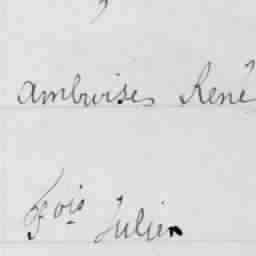 Ambroise René
Fçois Julien